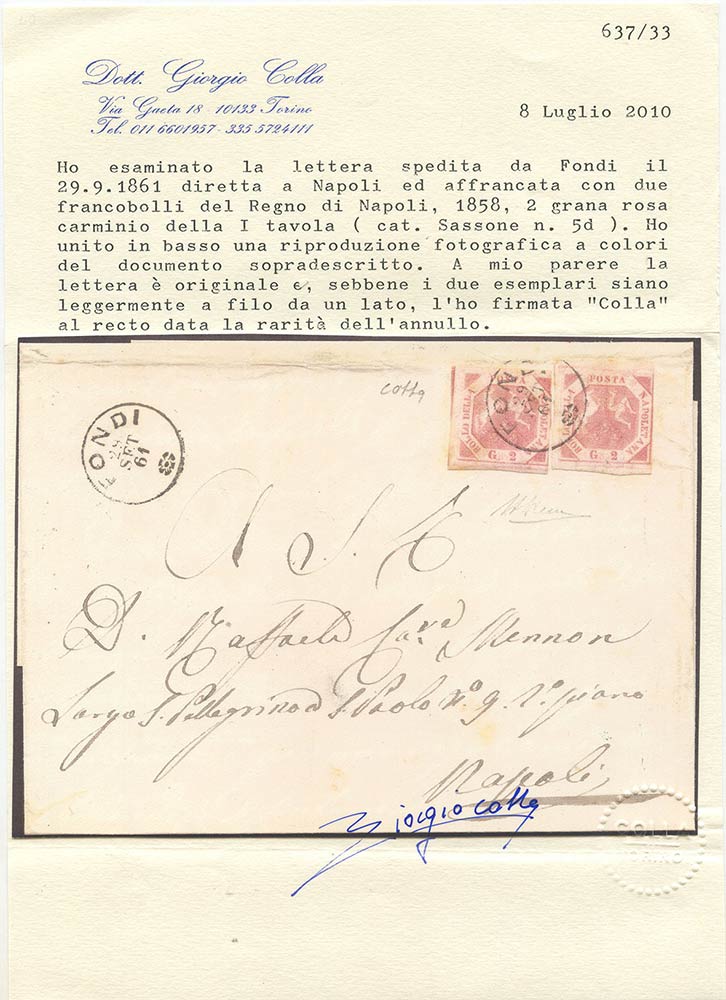 637/33
Dott. Giorgio Colla
Via Gaeta 18 - 10133 Torino
Tel. 011 6601957 - 335 5724111
8 Luglio 2010
Ho esaminato la lettera spedita da Fondi il
29.9.1861 diretta a Napoli ed affrancata con due
francobolli del Regno di Napoli, 1858, 2 grana rosa
carminio della I tavola ( cat. Sassone n. 5d ). Ho
unito in basso una riproduzione fotografica a colori
del documento sopradescritto. A mio parere la
lettera è originale e, sebbene i due esemplari siano
leggermente a filo da un lato, l'ho firmata "Colla"
al recto data la rarità dell'annullo.
FONDI
29
SET
61
Colla
FONDI
BOLLO DELLA POSTA NAPOLETANA
G. 2
BOLLO DELLA POSTA NAPOLETANA
G. 2
A S. E
D. Raffaele Cav. Mennon
Largo S. Pellegrino a S. Paolo nº 9. 2º. piano
Napoli
Giorgio Colla
COLLA